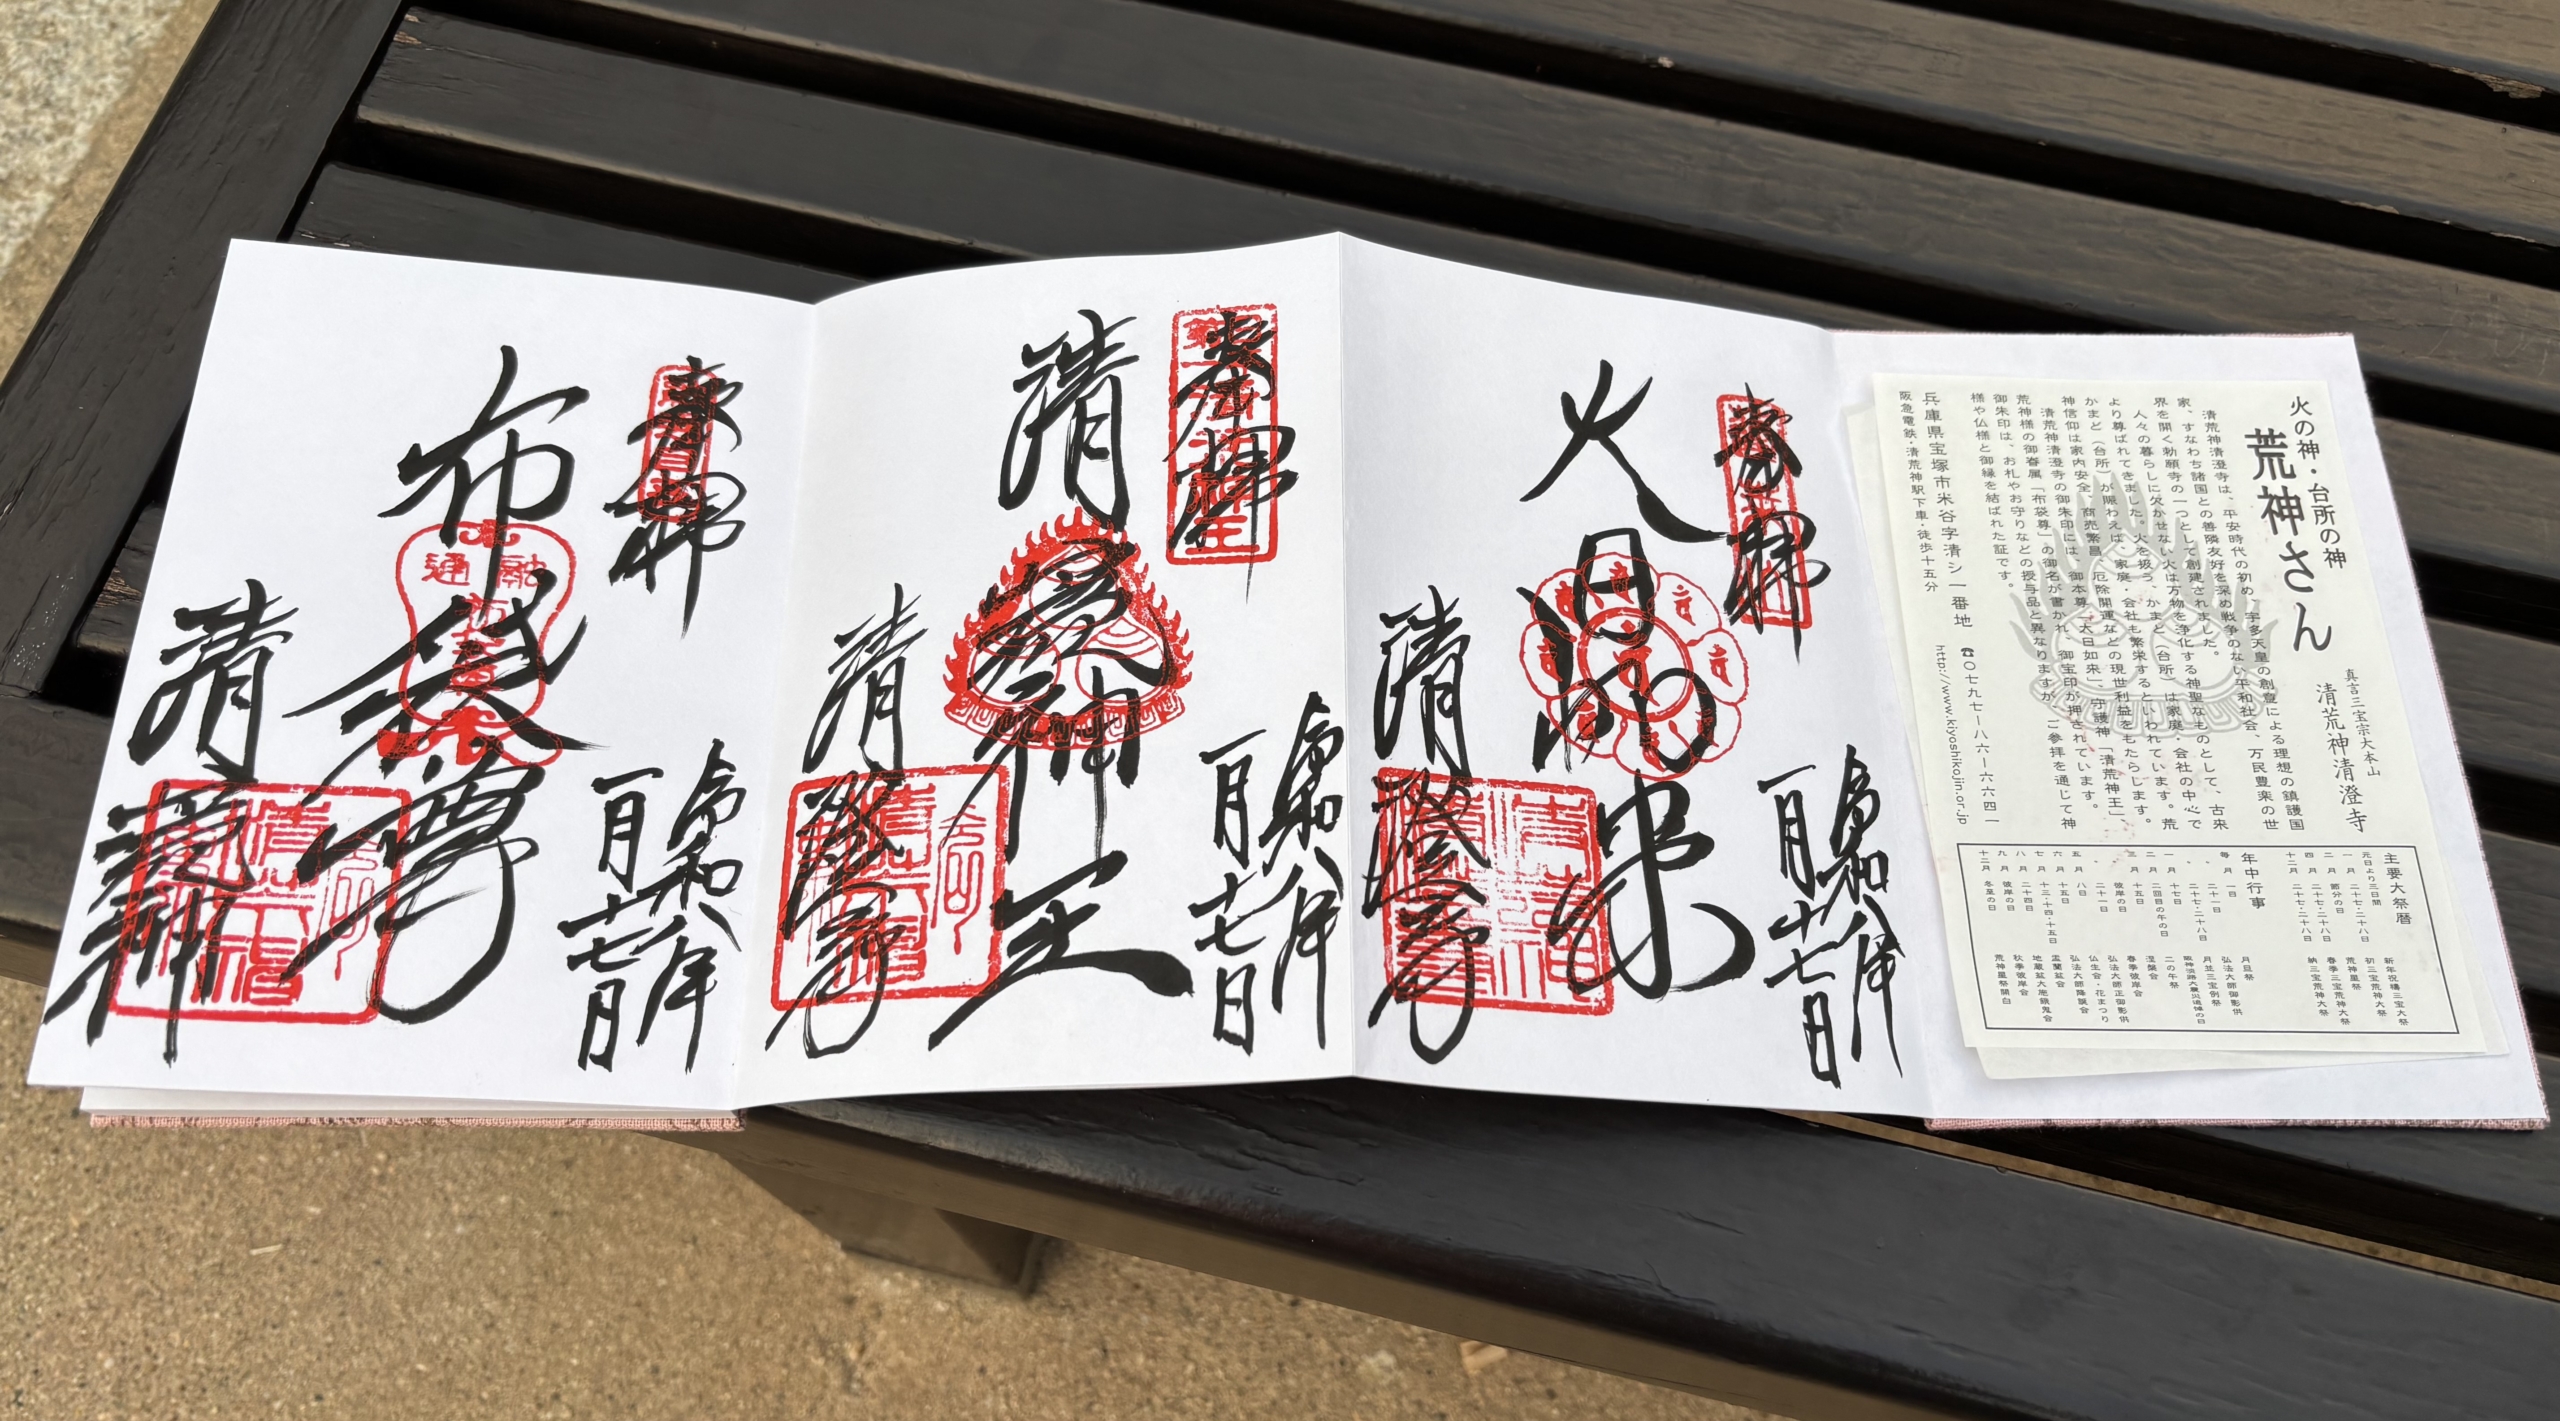 火の神・台所の神
荒神さん
真言三宝宗大本山
清荒神清澄寺
清荒神清澄寺は、平安時代の初め、宇多天皇の創意による理想の鎮護国
家、すなわち諸国との善隣友好を深め戦争のない平和社会、万民豊楽の世
界を開く勅願寺の一つとして創建されました。
人々の暮らしに欠かせない火は万物を浄化する神聖なものとして、古来
より尊ばれてきました。火を扱う、かまど（台所）は家庭・会社の中心で
かまど（台所）が賑わえば、家庭・会社も繁栄するといわれています。荒
神信仰は家内安全、商売繁昌、厄除開運などの現世利益をもたらします。
清荒神清澄寺の御朱印には、御本尊「大日如来」、守護神「清荒神王」、
荒神様の御眷属「布袋尊」の御名が書かれ、御宝印が押されています。
御朱印は、お札やお守りなどの授与品と異なりますが、ご参拝を通じて神
様や仏様と御縁を結ばれた証です。
兵庫県宝塚市米谷字清シ一番地 ☎〇七九七-八六-六六四一
阪急電鉄・清荒神駅下車・徒歩十五分 http://www.kiyoshikojin.or.jp
主要大祭暦
元日より三日間 新年祝禱三宝大祭
一月 二十七・二十八日 初三宝荒神大祭
二月 節分の日 荒神星祭
四月 二十七・二十八日 春季三宝荒神大祭
十二月 二十七・二十八日 納三宝荒神大祭
年中行事
毎月 一日 月旦祭
〃 二十一日 弘法大師御影供
〃 二十七・二十八日 月並三宝例祭
一月 十七日 阪神淡路大震災追悼の日
二月 二回目の午の日 二の午祭
三月 十五日 涅槃会
〃 彼岸の日 春季彼岸会
〃 二十一日 弘法大師正御影供
五月 八日 仏生会・花まつり
六月 十五日 弘法大師降誕会
七月 十三・十四・十五日 盂蘭盆会
八月 二十四日 地蔵盆大施餓鬼会
九月 彼岸の日 秋季彼岸会
十二月 冬至の日 荒神星祭開白
奉拝
令和八年
一月十七日
大日如来
清澄寺
奉拝
令和八年
一月十七日
清荒神王
清澄寺
奉拝
令和八年
一月十七日
布袋尊
融通
清荒神